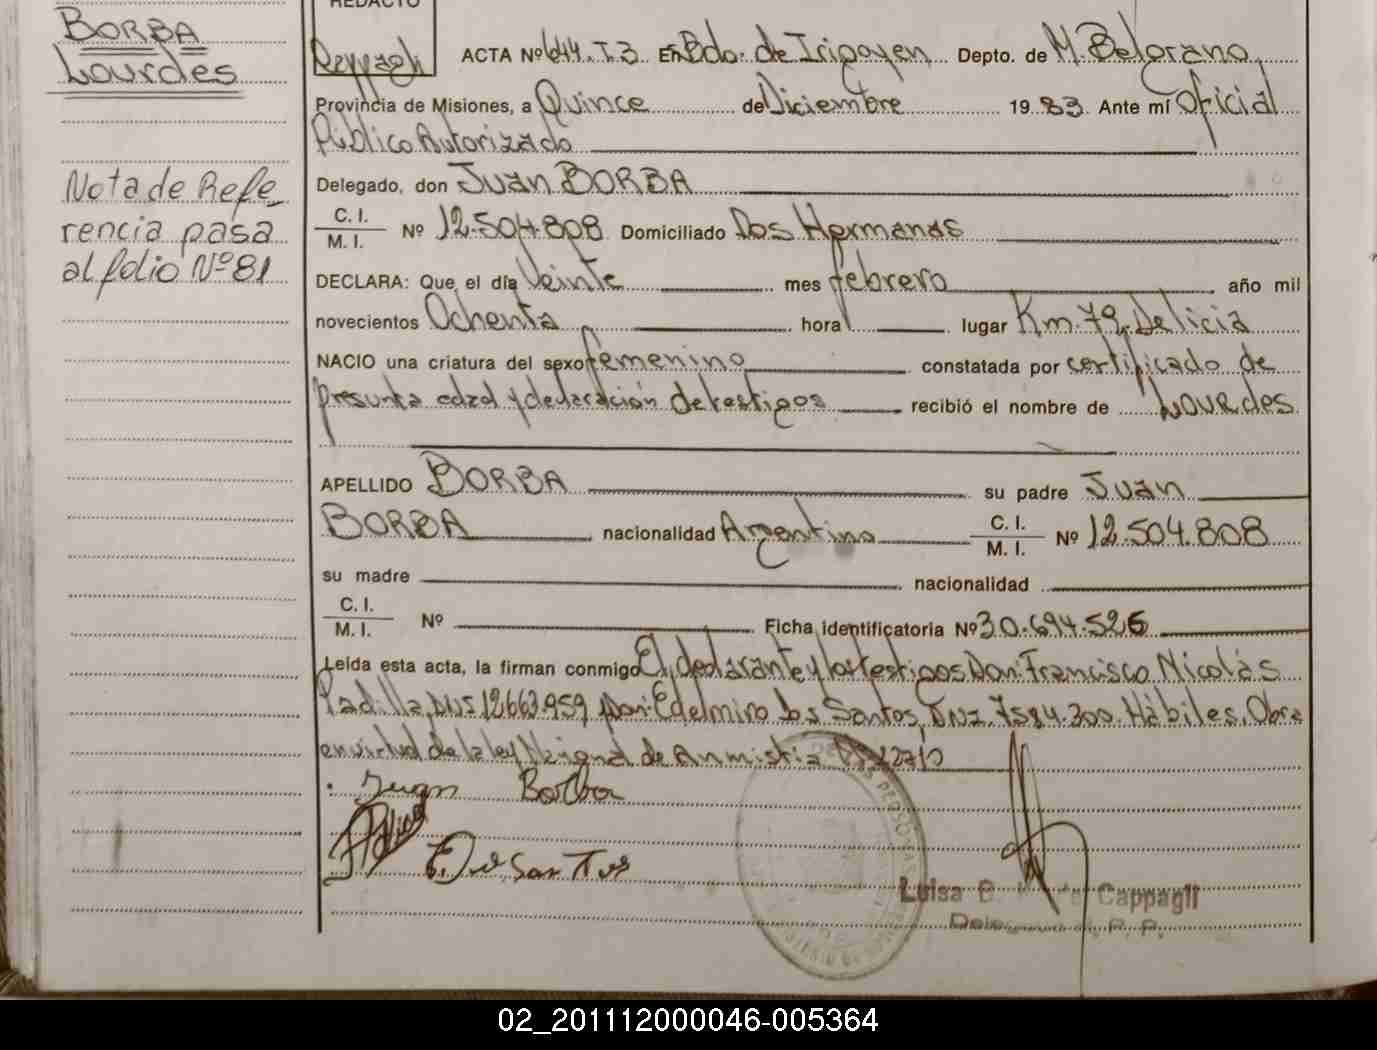 BORBA
Lourdes
Nota de Refe-
rencia pasa
al folio Nº 81
REDACTO
ACTA Nº 644. T.3 En Bdo. de Irigoyen Depto. de M. Belgrano
Provincia de Misiones, a Quince de Diciembre 19 83 Ante mí Oficial
Público Autorizado
Delegado, don Juan BORBA
C. I.
M. I. Nº 12.504.808 Domiciliado Dos Hermanas
DECLARA: Que el día Veinte mes febrero año mil
novecientos Ochenta hora lugar Km. 79. Delicia
NACIO una criatura del sexo femenino constatada por certificado de
presunta edad y declaración de testigos recibió el nombre de Lourdes
APELLIDO BORBA su padre Juan
BORBA nacionalidad Argentina C. I.
M. I. Nº 12.504.808
su madre nacionalidad
C. I.
M. I. Nº Ficha identificatoria Nº 30.694.526
Leída esta acta, la firman conmigo El declarante y los testigos Don: Francisco Nicolás
Padilla, DNI 12.663.959 y Don: Edelmiro Dos Santos, DNI. 7.584.300. Hábiles. Obra
en virtud de la ley Nacional de Amnistía
Juan Borba
E. Do Santos
Luisa Cappagli